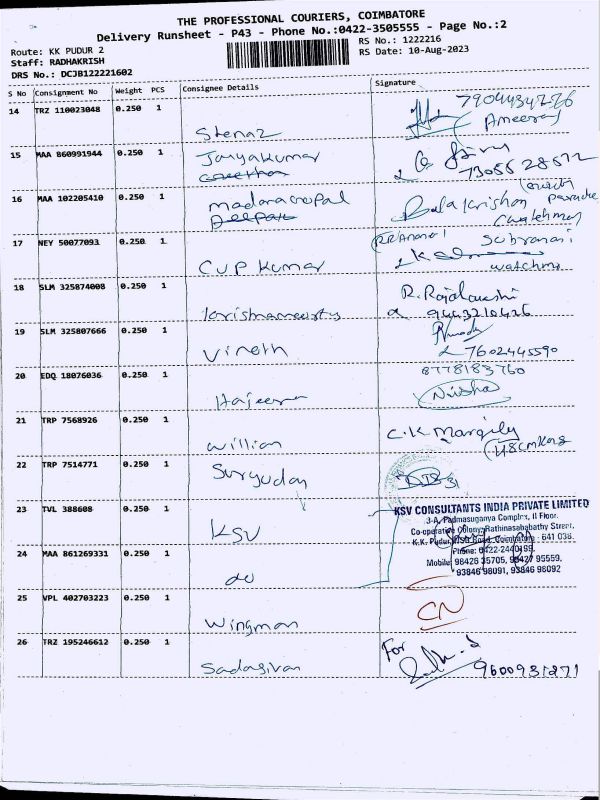 THE PROFESSIONAL COURIERS, COIMBATORE
Delivery Runsheet - P43 - Phone No.:0422-3505555 - Page No.:2
Route: KK PUDUR 2 RS No.: 1222216
Staff: RADHAKRISH RS Date: 10-Aug-2023
DRS No.: DCJB122221602
S No Consignment No Weight PCS Consignee Details Signature
14 TRZ 110023048 0.250 1
Ameeraj
15 MAA 860991944 0.250 1 Jayakumar
16 MAA 102205410 0.250 1 Balakrishnan
Deepak
17 NEY 50077093 0.250 1
CUP Kumar
18 SLM 325874008 0.250 1 R. Rajalakshmi
19 SLM 325807666 0.250 1
Vineth 7602445590
20 EDQ 18076036 0.250 1 8778183760
Nisha
21 TRP 7568926 0.250 1 C.K
Willian
22 TRP 7514771 0.250 1
23 TVL 388608 0.250 1 KSV CONSULTANTS INDIA PRIVATE LIMITED
3-A, Padmasuganya Complex, II Floor,
KSV Co-operative Colony, Rathinasabapathy Street,
K.K. Pudur, Coimbatore - 641 038.
24 MAA 861269331 0.250 1 Phone: 0422-2440199,
Mobile: 98428 35705, 98427 95559,
do 93846 98091, 93846 98092
25 VPL 402703223 0.250 1 CN
Wingman
26 TRZ 195246612 0.250 1 For
Sadasivan 9600931271